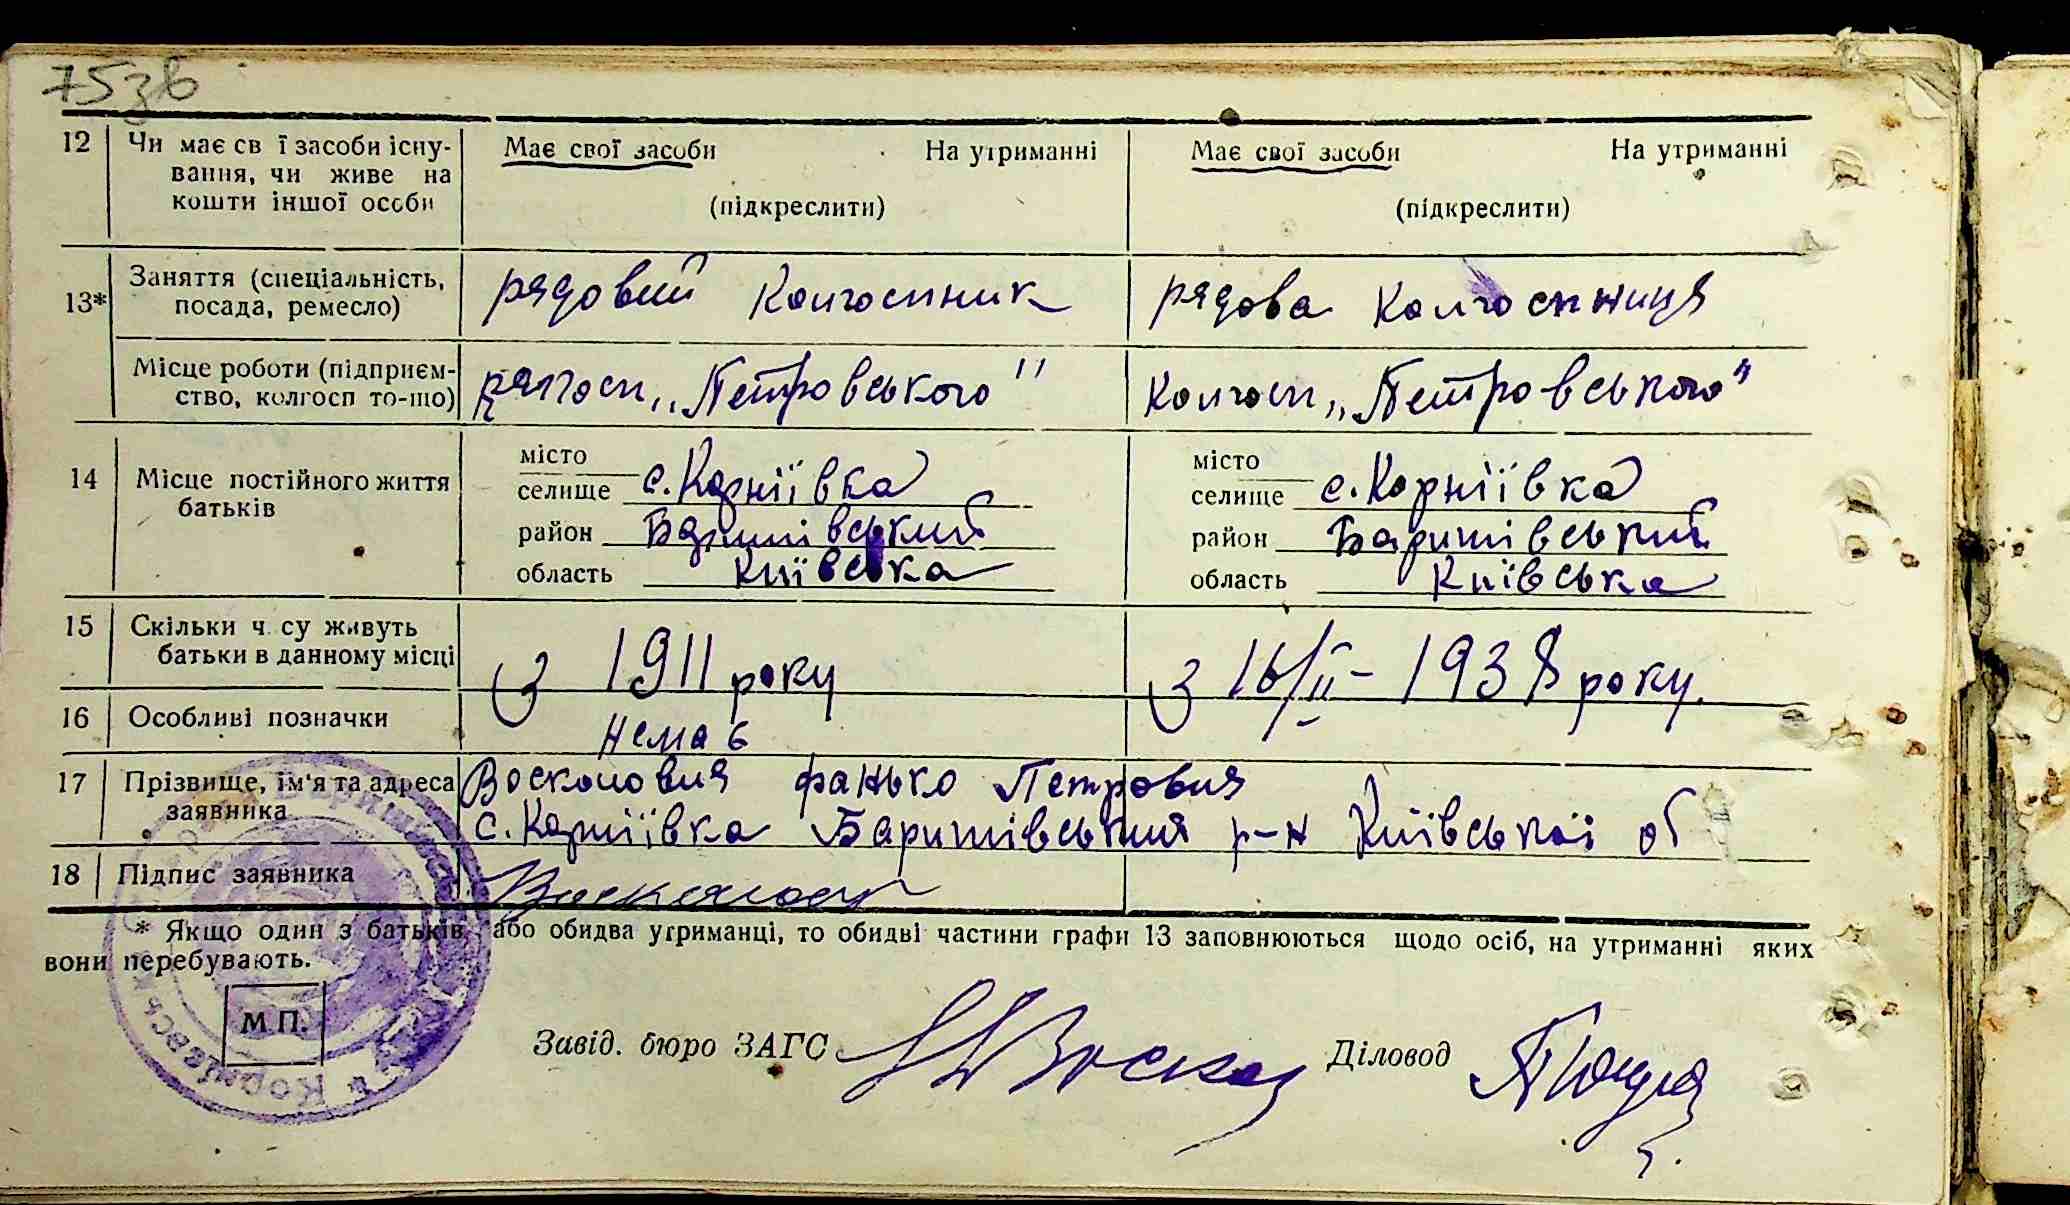 75зв
12 Чи має св ї засоби існу-
вання, чи живе на
кошти іншої особи
Має свої засоби На утриманні
(підкреслити)
Має свої засоби На утриманні
(підкреслити)
13* Заняття (спеціальність,
посада, ремесло)
рядовий колгоспник
рядова колгоспниця
Місце роботи (підприєм-
ство, колгосп то-що)
колгосп „Петровського"
колгосп „Петровського"
14 Місце постійного життя
батьків
місто
селище с. Корніївка
район Баришівський
область Київська
місто
селище с. Корніївка
район Баришівський
область Київська
15 Скільки ч су живуть
батьки в данному місці
З 1911 року
З 16/II - 1938 року.
16 Особливі позначки
Немає
17 Прізвище, ім'я та адреса
заявника
Фанько Петрович
с. Корніївка Баришівський р-н Київської об
18 Підпис заявника
* Якщо один з батьків, або обидва утриманці, то обидві частини графи 13 заповнюються щодо осіб, на утриманні яких
вони перебувають.
М П.
Завід. бюро ЗАГС
Діловод